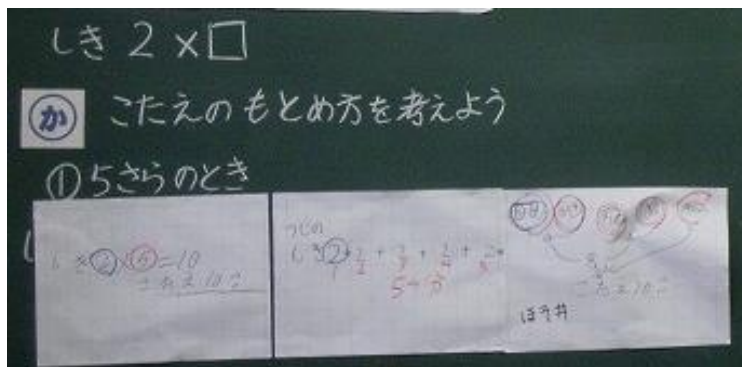 しき 2×□
か こたえのもとめ方を考えよう
① 5さらのとき
しき2×5=10
こたえ10こ
つじの
しき2+2+2+2+2
1 2 3 4 5
こたえ10こ
ほそ井